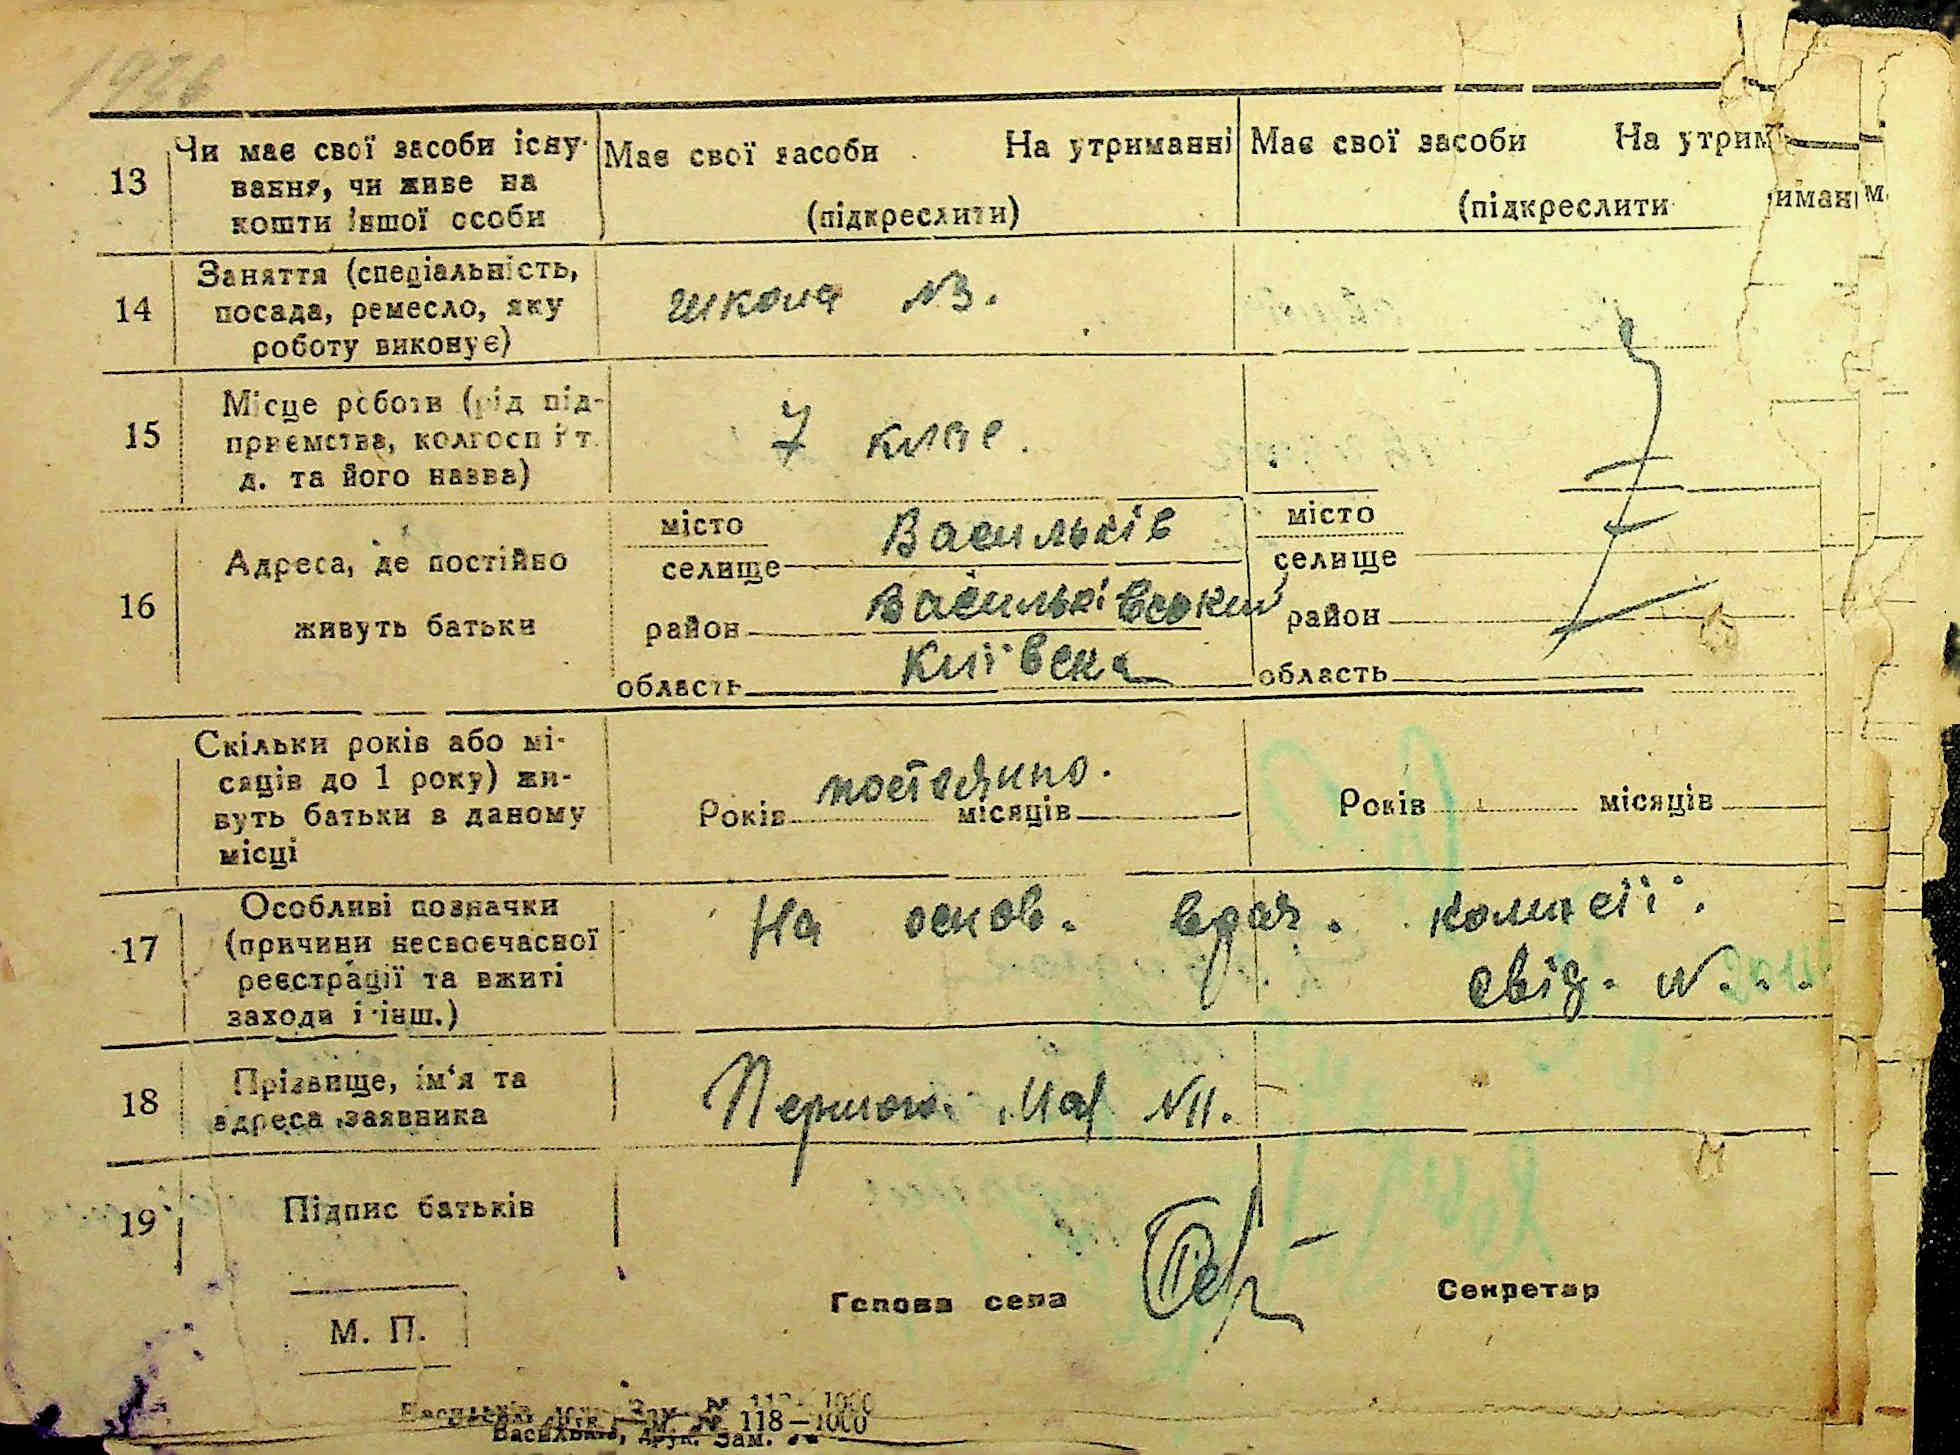 1926
13 Чи має свої засоби існу- Має свої засоби На утриманні Має свої засоби На утрим
вання, чи живе на
кошти іншої особи (підкреслити) (підкреслити
иман
14 Заняття (спеціальність,
посада, ремесло, яку школа №3.
роботу виконує)
15 Місце роботи (рід під-
приємства, колгосп і т. 7 клас.
д. та його назва)
16 Адреса, де постійно
живуть батьки
місто Васильків місто
селище селище
район Васильківський район
область Київська область
Скільки років або мі-
сяців до 1 року) жи- постоянно.
вуть батьки в даному Років місяців Років місяців
місці
17 Особливі позначки На основ. врач. комісії.
(причини несвоєчасної
реєстрації та вжиті свід. №...
заходи і інш.)
18 Прізвище, ім'я та Першого Мая №11.
адреса заявника
19 Підпис батьків
Голова села Секретар
М. П.
Васильків, друк. Зам. № 118—1000